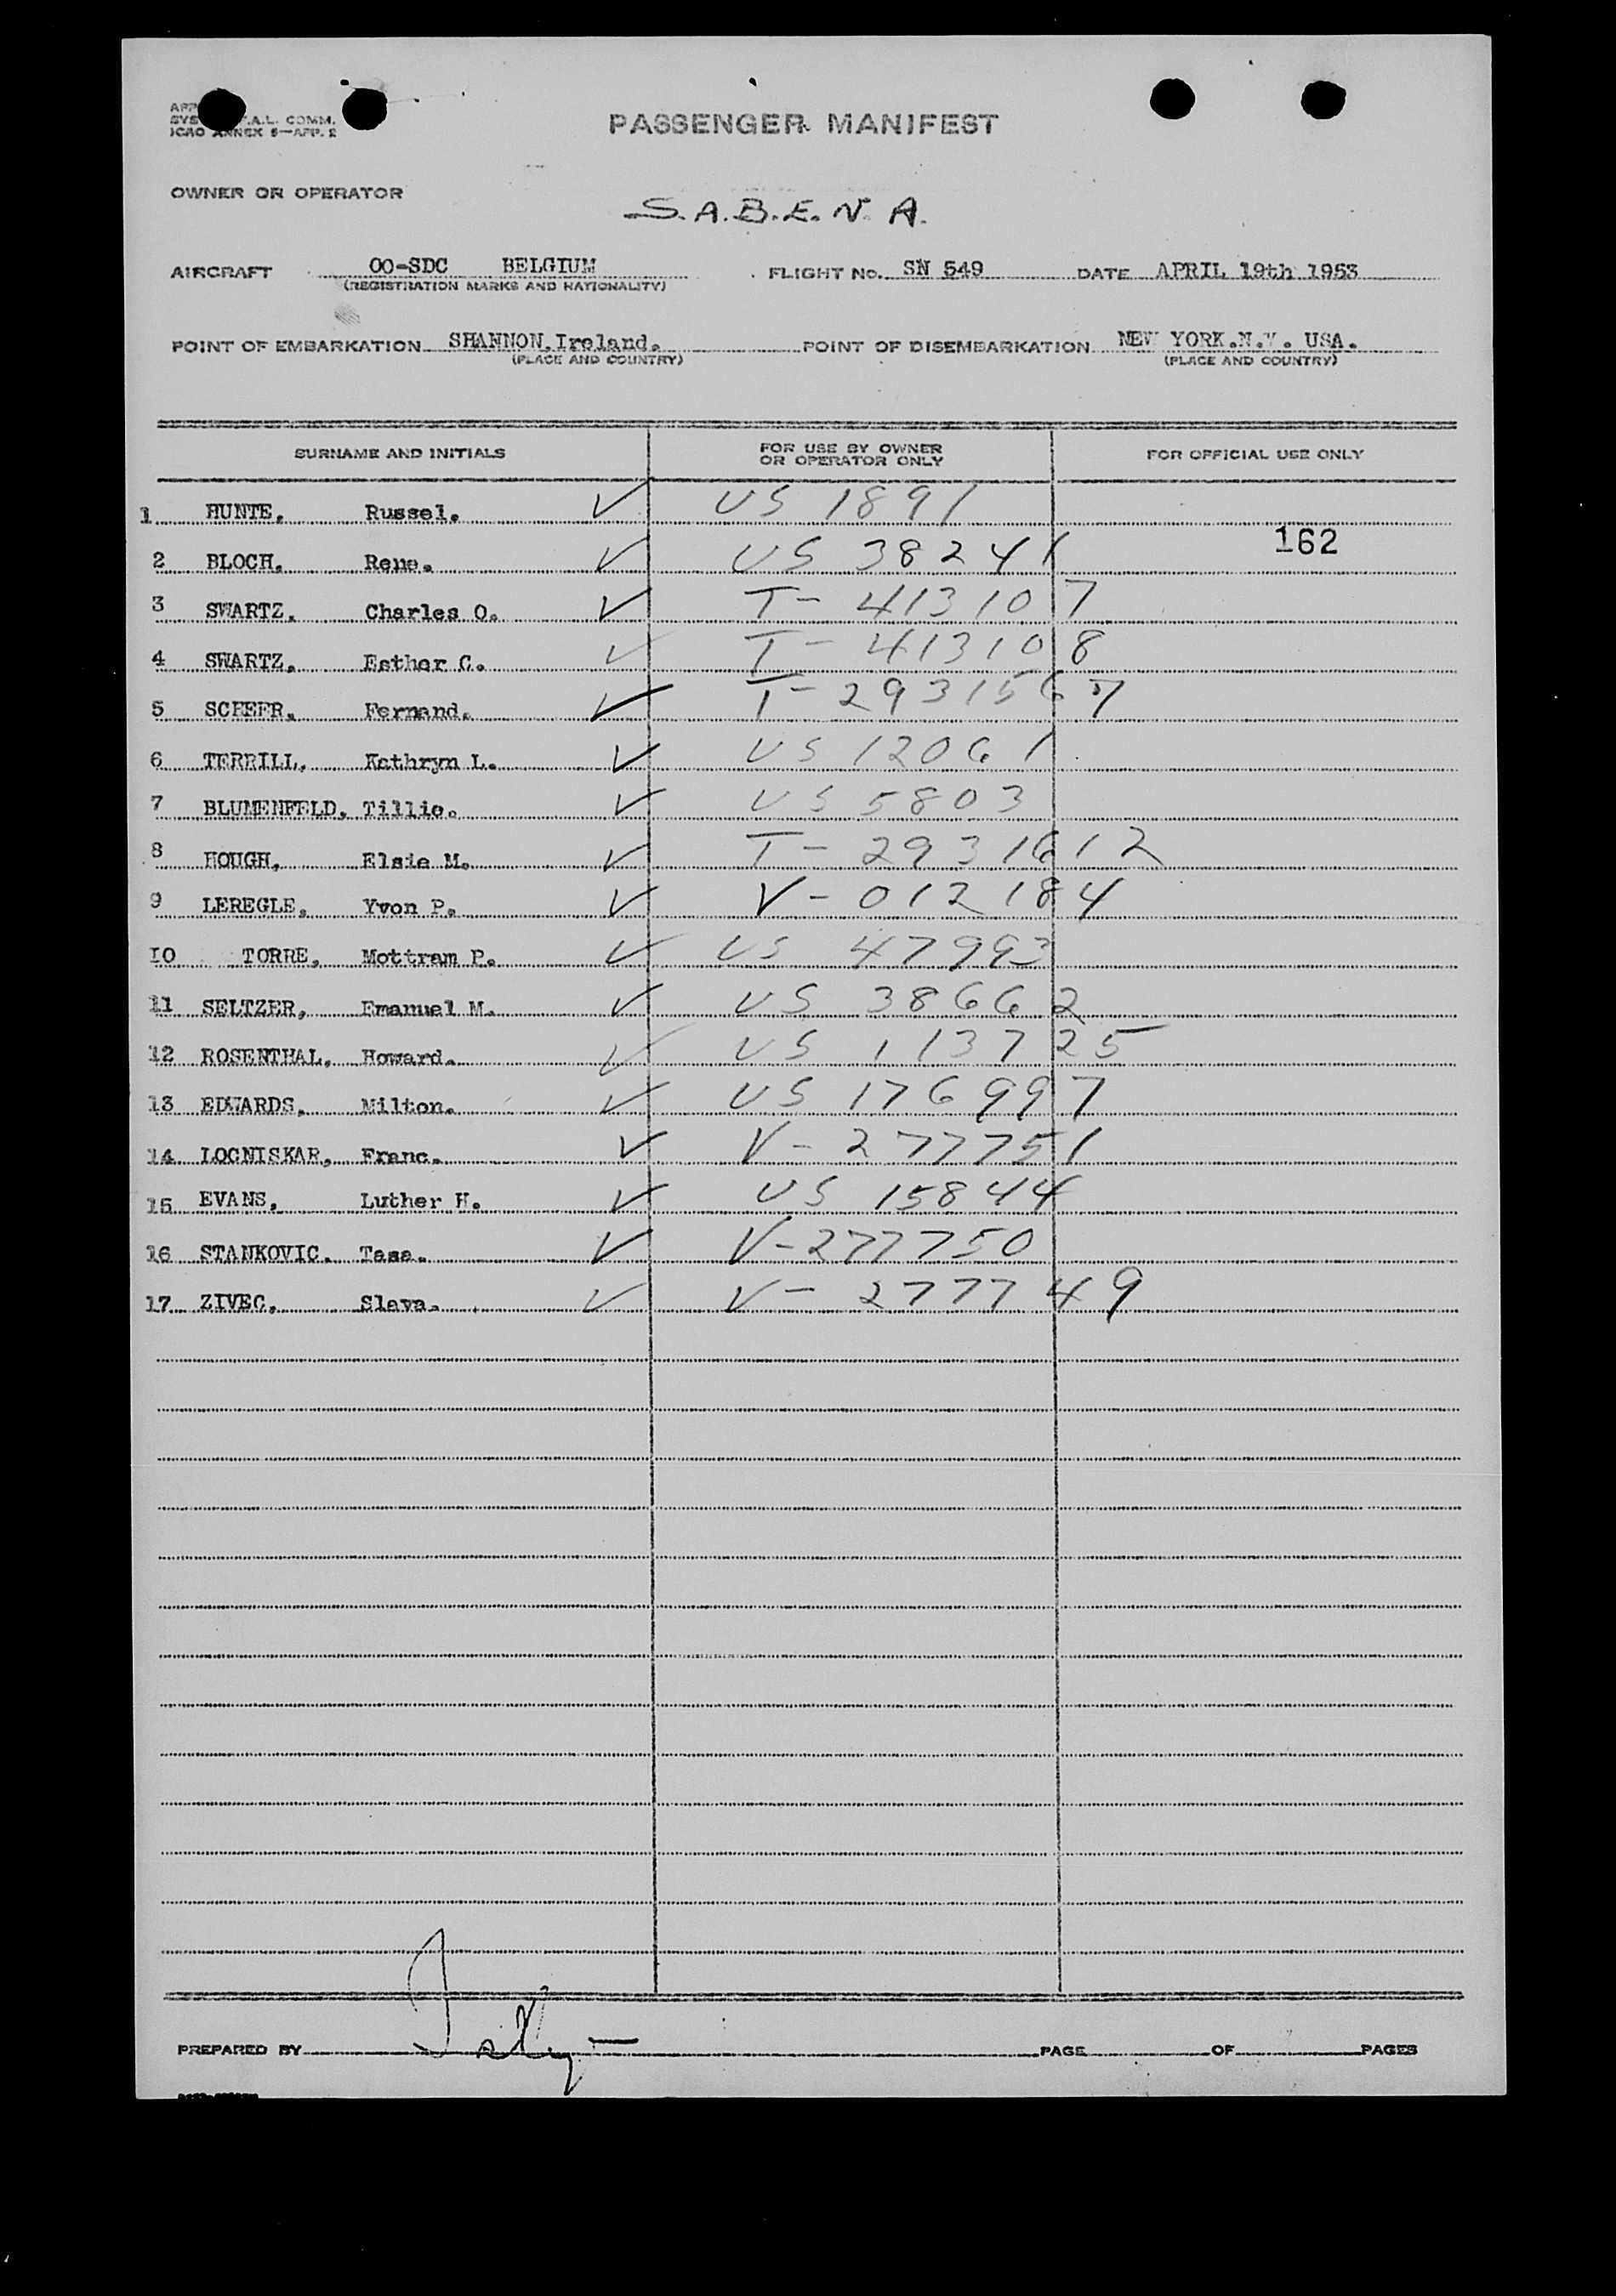 PASSENGER MANIFEST
F.A.L. COMM.
ICAO ANNEX 9—APP. 2
OWNER OR OPERATOR
S.A.B.E.N.A.
AIRCRAFT OO-SDC BELGIUM FLIGHT No. SN 549 DATE APRIL 19th 1953
(REGISTRATION MARKS AND NATIONALITY)
POINT OF EMBARKATION SHANNON.Ireland. POINT OF DISEMBARKATION NEW YORK.N.Y. USA.
(PLACE AND COUNTRY) (PLACE AND COUNTRY)
SURNAME AND INITIALS FOR USE BY OWNER OR OPERATOR ONLY FOR OFFICIAL USE ONLY
1 HUNTE. Russel. ✓ US 1891
162
2 BLOCH. Rene. ✓ US 38241
3 SWARTZ. Charles O. ✓ T- 413107
4 SWARTZ. Esther C. ✓ T- 413108
5 SCHEFR. Fernand. ✓ T- 2931567
6 TERRILL. Kathryn L. ✓ US 12061
7 BLUMENFELD. Tillie. ✓ US 5803
8 HOUGH. Elsie M. ✓ T- 2931612
9 LEREGLE. Yvon P. ✓ V- 012184
10 TORRE. Mottram P. ✓ US 47993
11 SELTZER. Emanuel M. ✓ US 38662
12 ROSENTHAL. Howard. ✓ US 113725
13 EDWARDS. Milton. ✓ US 176997
14 LOCNISKAR. Franc. ✓ V- 277751
15 EVANS. Luther H. ✓ US 15844
16 STANKOVIC. Tasa. ✓ V-277750
17 ZIVEC. Slava. ✓ V- 277749
PREPARED BY PAGE OF PAGES